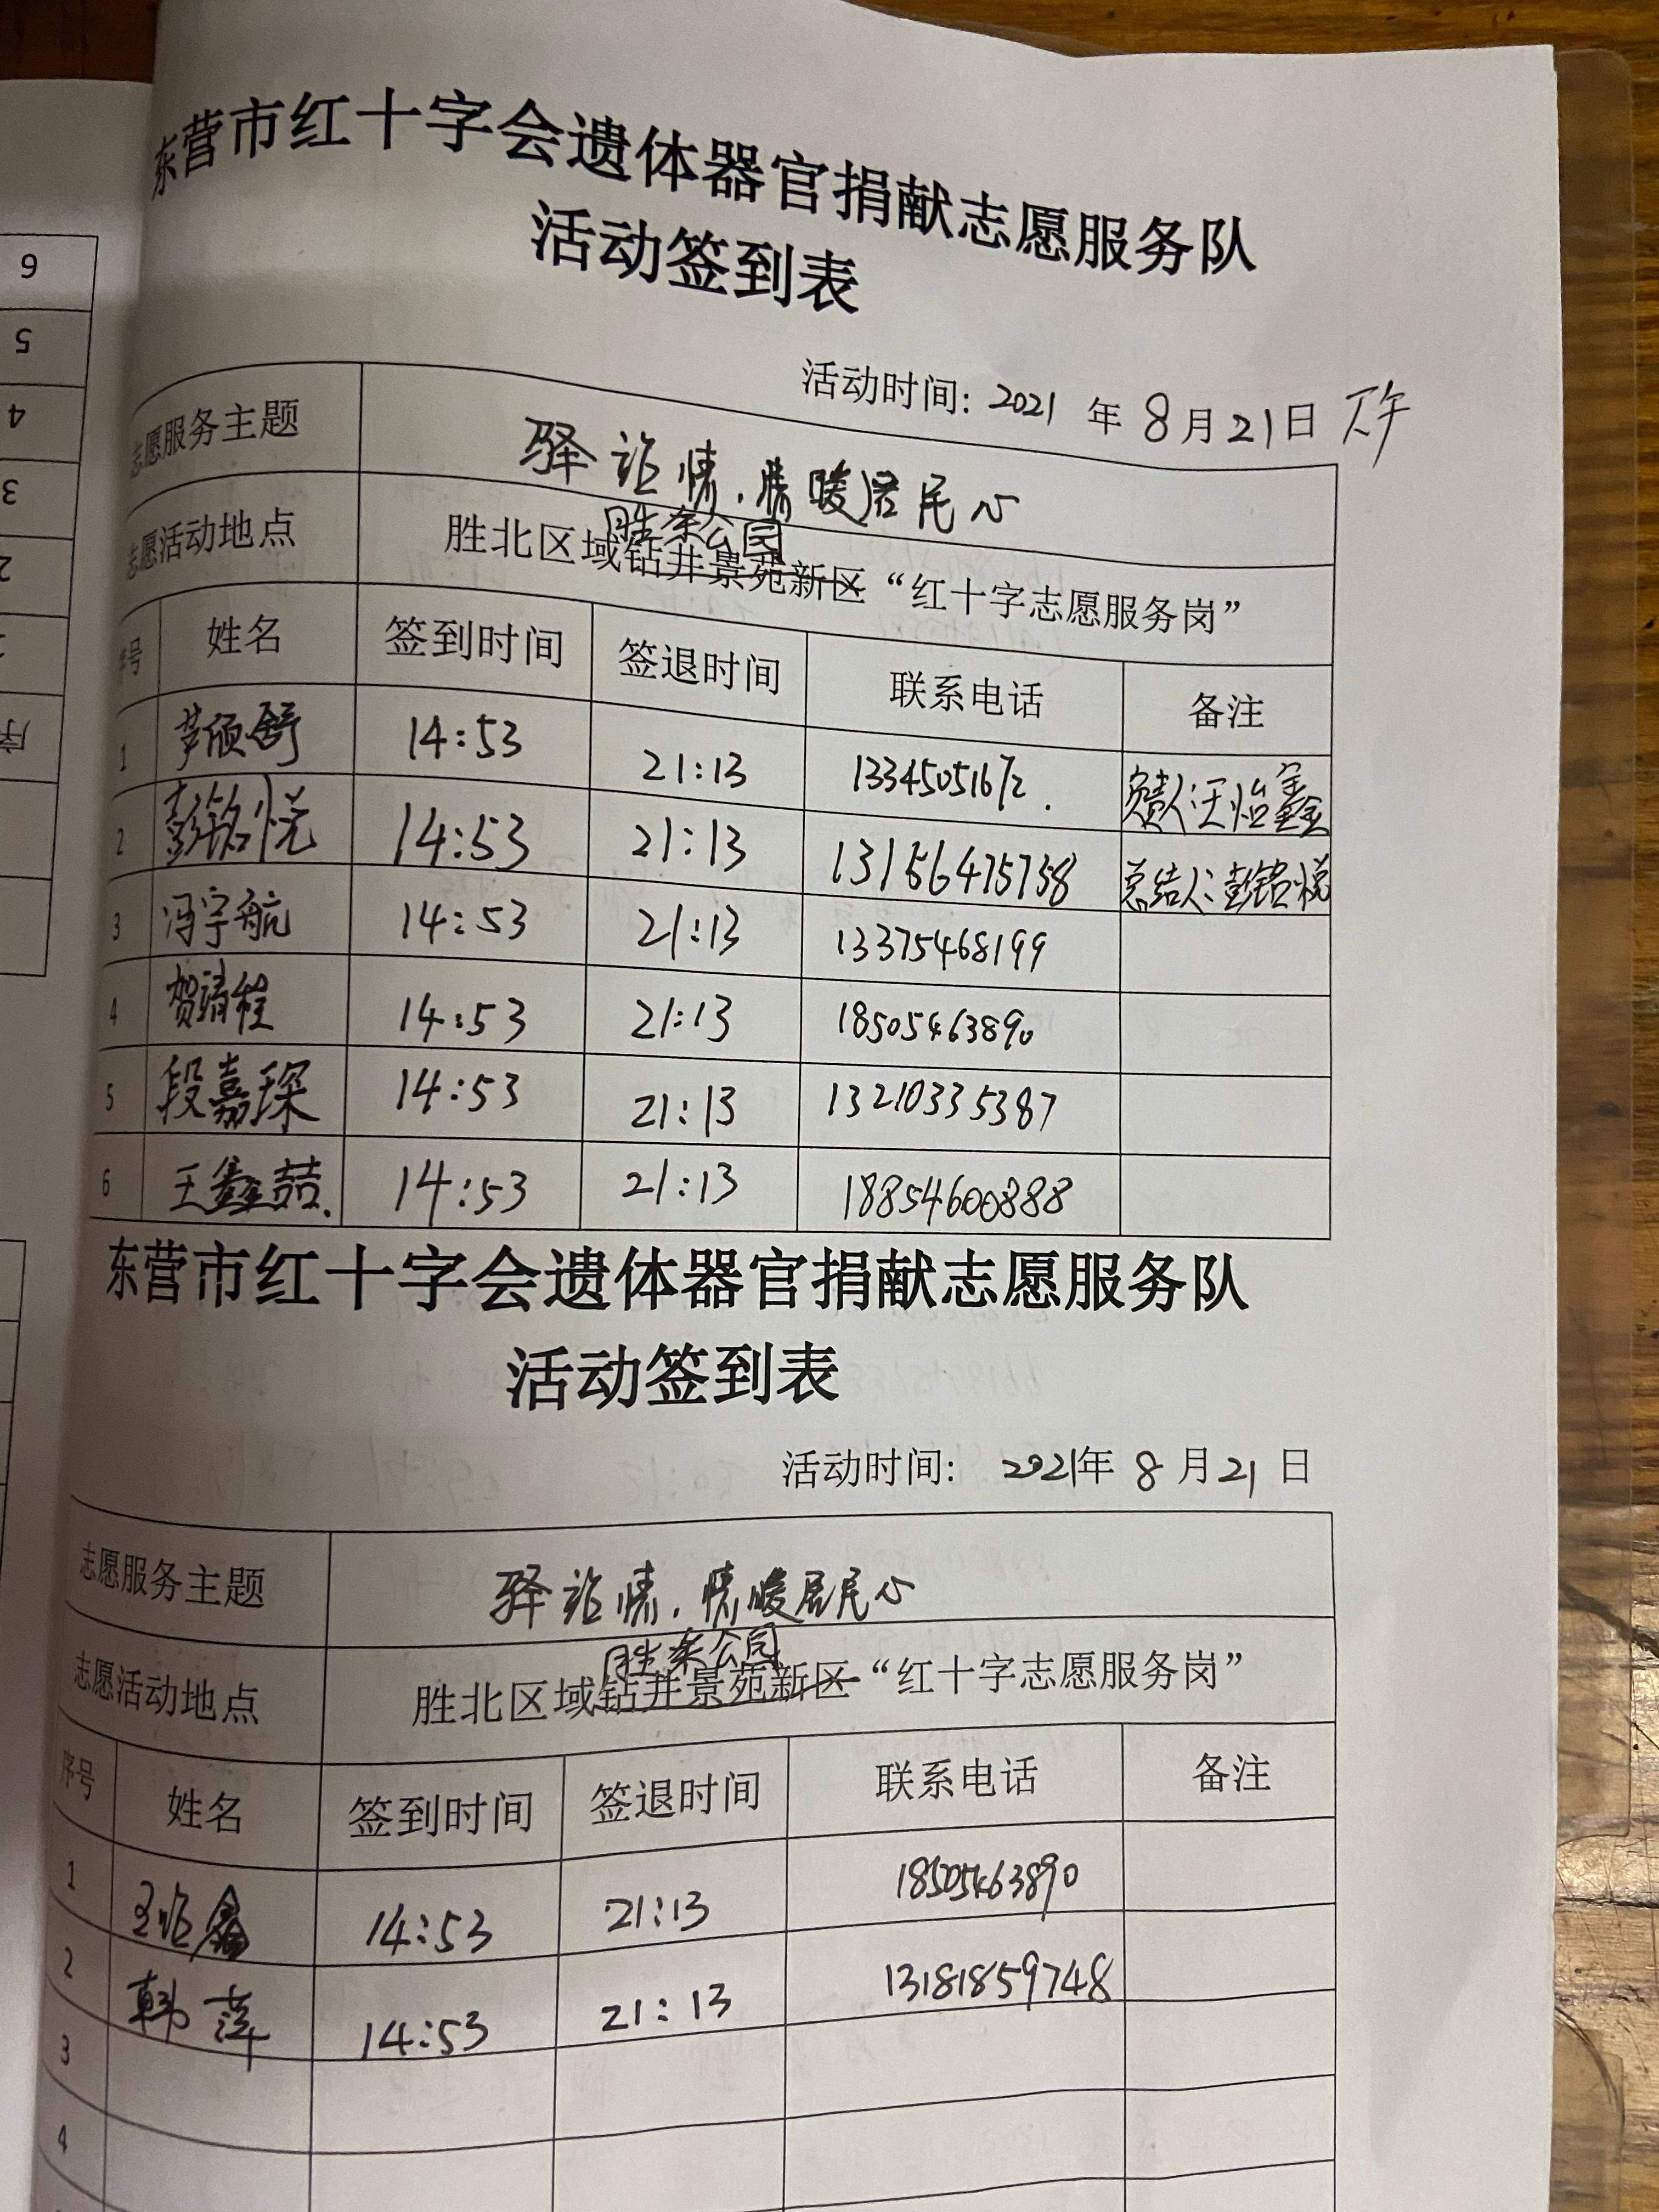 东营市红十字会遗体器官捐献志愿服务队
活动签到表
活动时间: 2021 年 8 月 21 日 下午
志愿服务主题 驿站情,情暖居民心
胜东公园
志愿活动地点 胜北区域钻井景苑新区“红十字志愿服务岗”
序号 姓名 签到时间 签退时间 联系电话 备注
1 14:53 21:13 13345051672. 负责人:王怡鑫
2 彭铭悦 14:53 21:13 13156475758 总结人:彭铭悦
3 冯宇航 14:53 21:13 13375468199
4 贺靖程 14:53 21:13 18505463890
5 段嘉琛 14:53 21:13 13210335387
6 王鑫喆. 14:53 21:13 18854600888
东营市红十字会遗体器官捐献志愿服务队
活动签到表
活动时间: 2021年 8 月 21 日
志愿服务主题 驿站情,情暖居民心
胜东公园
志愿活动地点 胜北区域钻井景苑新区“红十字志愿服务岗”
序号 姓名 签到时间 签退时间 联系电话 备注
1 王怡鑫 14:53 21:13 18505463890
2 韩萍 14:53 21:13 13181859748
3
4
6
5
4
3
2
1
序